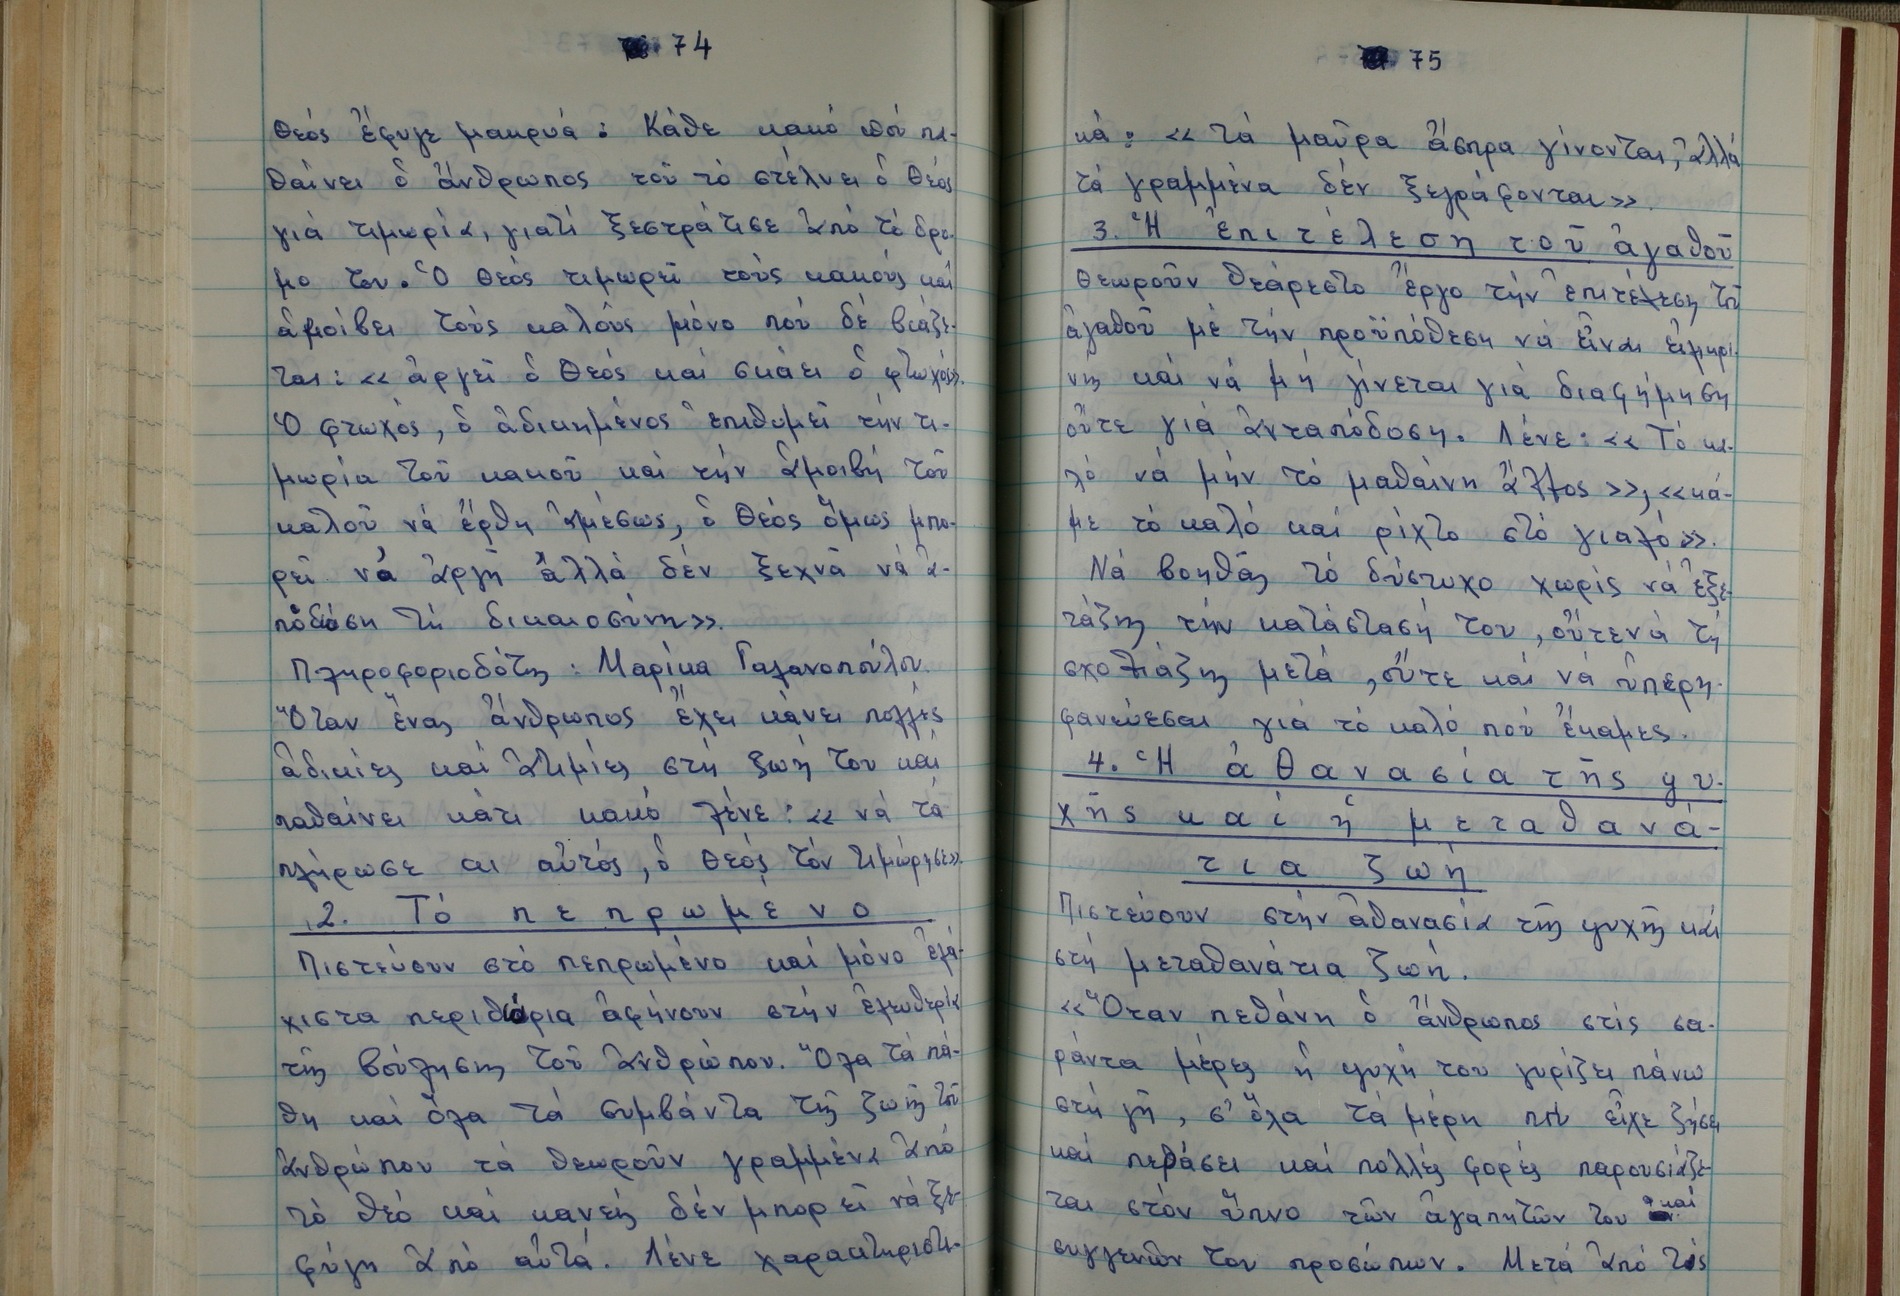 74
θεός ἔφυγε μακρυά: Κάθε κακό πού πα-
θαίνει ὁ ἄνθρωπος τοῦ τό στέλνει ὁ θεός
γιά τιμωρία, γιατί ξεστράτισε ἀπό τό δρό-
μο του. Ὁ θεός τιμωρεῖ τούς κακούς καί
ἀμοίβει τούς καλούς μόνο πού δέ βιάζε-
ται: «ἀργεῖ ὁ θεός καί σκάει ὁ φτωχός».
Ὁ φτωχός, ὁ ἀδικημένος ἐπιθυμεῖ τήν τι-
μωρία τοῦ κακοῦ καί τήν ἀμοιβή τοῦ
καλοῦ νά ἔρθη ἀμέσως, ὁ θεός ὅμως μπο-
ρεῖ νά ἀργῆ ἀλλά δέν ξεχνᾶ νά ἀ-
ποδώση τή δικαιοσύνη».
Πληροφοριοδότης: Μαρίκα Γαλανοπούλου.
Ὅταν ἕνας ἄνθρωπος ἔχει κάνει πολλές
ἀδικίες καί ἀτιμίες στή ζωή του καί
παθαίνει κάτι κακό λένε: «νά τά
πλήρωσε κι αὐτός, ὁ θεός τόν τιμώρησε».
2. Τό πεπρωμένο
Πιστεύουν στό πεπρωμένο καί μόνο ἐλά-
χιστα περιθώρια ἀφήνουν στήν ἐλευθερία
τῆς βούλησης τοῦ ἀνθρώπου. Ὅλα τά πά-
θη καί ὅλα τά συμβάντα τῆς ζωῆς τοῦ
ἀνθρώπου τά θεωροῦν γραμμένα ἀπό
τό θεό καί κανείς δέν μπορεῖ νά ξε-
φύγη ἀπό αὐτά. Λένε χαρακτηριστι-
75
κά: «τά μαῦρα ἄσπρα γίνονται, ἀλλά
τά γραμμένα δέν ξεγράφονται».
3. Ἡ ἐπιτέλεση τοῦ ἀγαθοῦ
Θεωροῦν θεάρεστο ἔργο τήν ἐπιτέλεση τοῦ
ἀγαθοῦ μέ τήν προϋπόθεση νά εἶναι εἰλικρι-
νής καί νά μή γίνεται γιά διαφήμηση
οὔτε γιά ἀνταπόδοση. Λένε: «Τό κα-
λό νά μήν τό μαθαίνη ἄλλος», «κά-
με τό καλό καί ρίχτο στό γιαλό».
Νά βοηθᾶς τό δύστυχο χωρίς νά ἐξε-
τάζης τήν κατάστασή του, οὔτε νά τή
σχολιάζης μετά, οὔτε καί νά ὑπερη-
φανεύεσαι γιά τό καλό πού ἔκαμες.
4. Ἡ ἀθανασία τῆς ψυ-
χῆς καί ἡ μεταθανά-
τια ζωή
Πιστεύουν στήν ἀθανασία τῆς ψυχῆς καί
στή μεταθανάτια ζωή.
«Ὅταν πεθάνη ὁ ἄνθρωπος στίς σα-
ράντα μέρες ἡ ψυχή του γυρίζει πάνω
στή γῆ, σ' ὅλα τά μέρη πού εἶχε ζήσει
καί περάσει καί πολλές φορές παρουσιάζε-
ται στόν ὕπνο τῶν ἀγαπητῶν του καί
συγγενῶν του προσώπων. Μετά ἀπό τίς